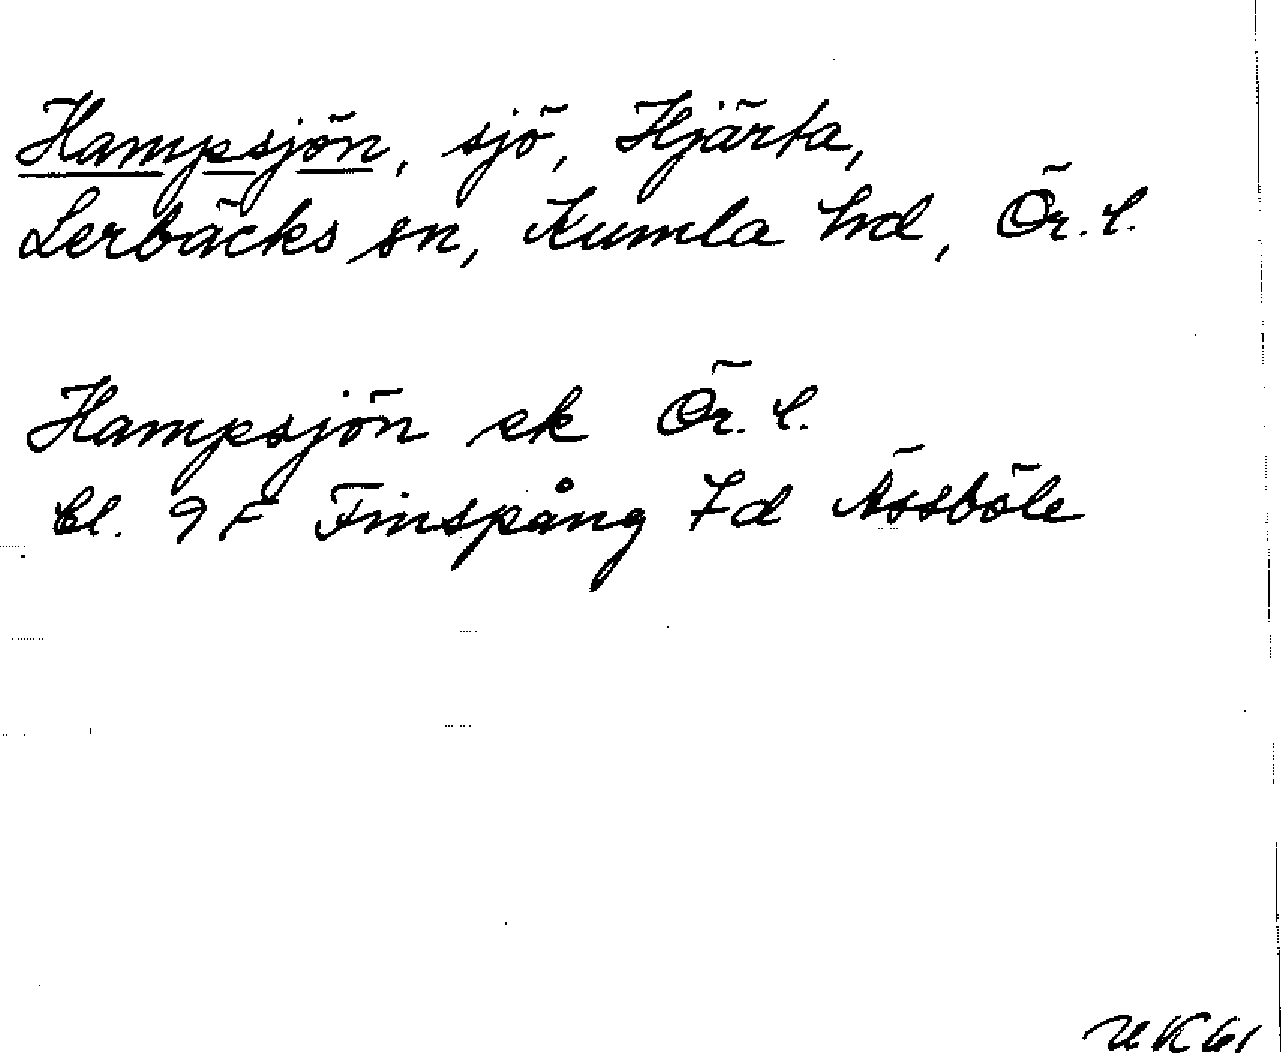 Hampsjön, sjö, Hjärta,
Lerbäcks sn, Kumla hd, Ör. l.
Hampsjön ek Ör. l.
bl. 9F Finspång 7d Åssböle
UK61